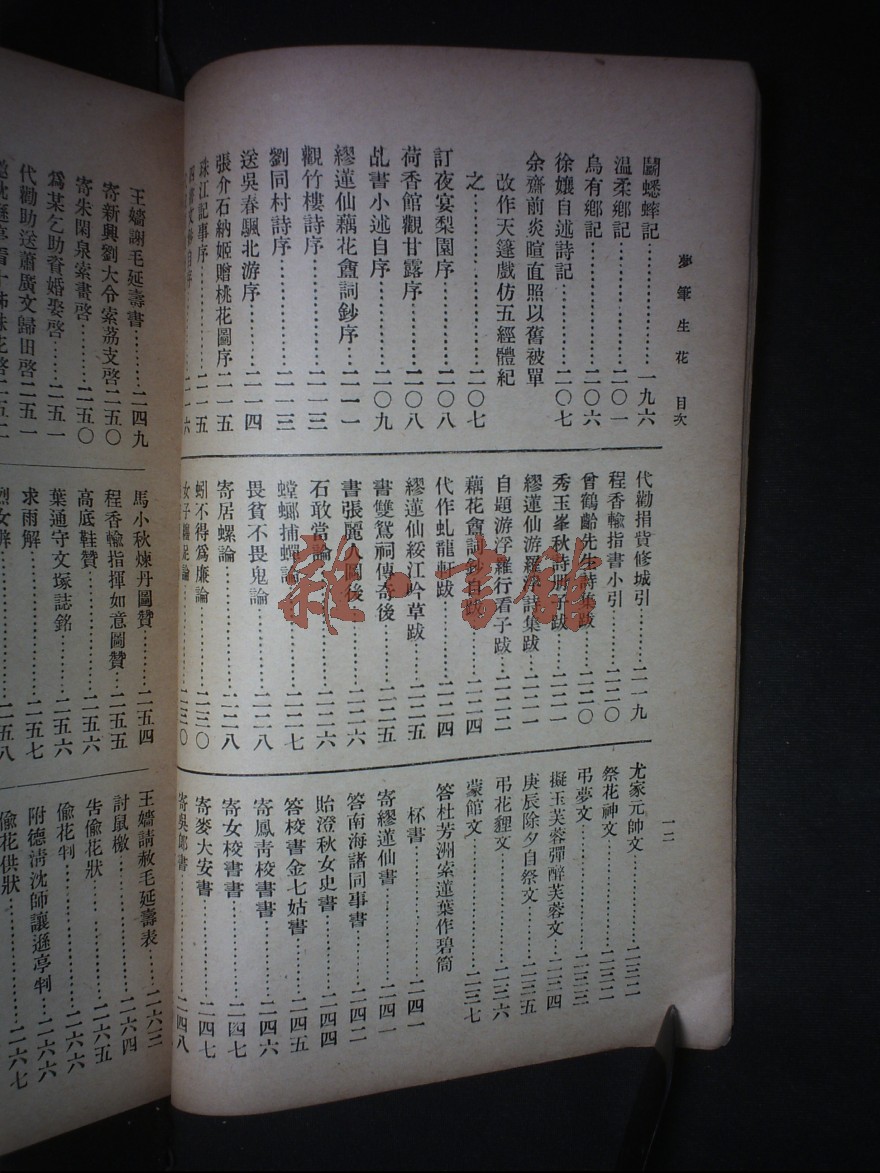 夢筆生花　目次
鬭蟋蟀記…………一九六
温柔鄉記…………二〇一
烏有鄉記…………二〇六
徐孃自述詩記…………二〇七
余齋前炎暄直照以舊被單
改作天篷戲仿五經體紀
之…………二〇七
訂夜宴梨園序…………二〇八
荷香館觀甘露序…………二〇八
乩書小述自序…………二〇九
繆蓮仙藕花龕詞鈔序…………二一一
觀竹樓詩序…………二一三
劉同村詩序…………二一三
送吳春颿北游序…………二一四
張介石納姬贈桃花圖序…………二一五
珠江記事序…………二一五
代勸捐貲修城引…………二一九
程香輪指書小引…………二二〇
曾鶴齡先生詩集跋…………二二〇
秀玉峯秋詩册子跋…………二二一
繆蓮仙游羅浮詩集跋…………二二一
自題游浮羅行看子跋…………二二二
藕花龕詞鈔自跋…………二二四
代作虬龍斬跋…………二二四
繆蓮仙綏江吟草跋…………二二五
書雙鴛祠傳奇後…………二二五
書張麗人圖後…………二二六
石敢當論…………二二六
螳螂捕蟬論…………二二七
畏貧不畏鬼論…………二二八
寄居螺論…………二二八
蚓不得爲廉論…………二三〇
二三〇
尤家元帥文…………二三二
祭花神文…………二三二
弔夢文…………二三三
擬玉芙蓉彈醉芙蓉文…………二三四
庚辰除夕自祭文…………二三五
弔花貍文…………二三六
蒙館文…………二三七
答杜芳洲索蓮葉作碧筒
杯書…………二四一
寄繆蓮仙書…………二四一
答南海諸同事書…………二四二
貽澄秋女史書…………二四四
答校書金七姑書…………二四五
寄鳳青校書書…………二四六
寄女校書書…………二四七
寄麥大安書…………二四七
寄吳郎書…………二四八
一二
王嬙謝毛延壽書…………二四九
寄新興劉大令索荔支啓二五〇
寄朱閑泉索畫啓…………二五〇
爲某乞助貲婚娶啓…………二五一
代勸助送蕭廣文歸田啓二五一
馬小秋煉丹圖贊…………二五四
程香輪指揮如意圖贊……二五五
高底鞋贊…………二五六
葉通守文塚誌銘…………二五六
求雨解…………二五七
烈女辨…………二五八
王嬙請赦毛延壽表………二六三
討鼠檄…………二六四
告偷花狀…………二六五
偷花判…………二六六
附德清沈師讓遜亭判……二六六
偷花供狀…………二六七
雜·書館